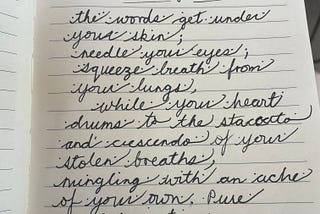 the words get under
your skin;
needle your eyes;
squeeze breath from
your lungs,
while your heart
drums to the staccato
and crescendo of your
stolen breaths,
mingling with an ache
of your own. Pure